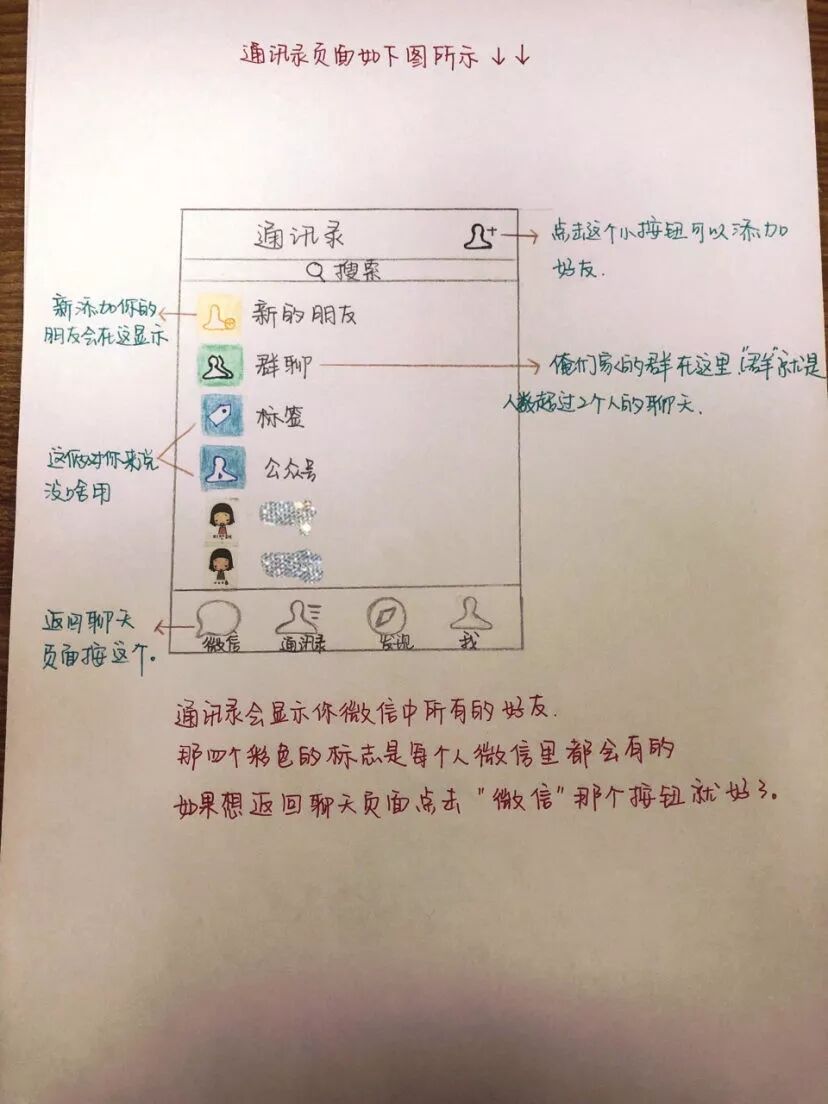 通讯录页面如下图所示↓↓
通讯录
点击这个小按钮可以添加
好友.
搜索
新添加你的
朋友会在这显示
新的朋友
群聊
俺们家的群在这里,"群"就是
人数超过2个人的聊天.
标签
这俩对你来说
没啥用
公众号
返回聊天
页面按这个。
微信
通讯录
发现
我
通讯录会显示你微信中所有的好友.
那四个彩色的标志是每个人微信里都会有的
如果想返回聊天页面点击"微信"那个按钮就好了。